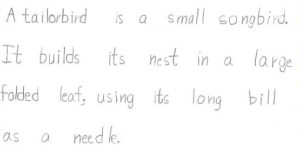 A tailorbird is a small songbird.
It builds its nest in a large
folded leaf, using its long bill
as a needle.